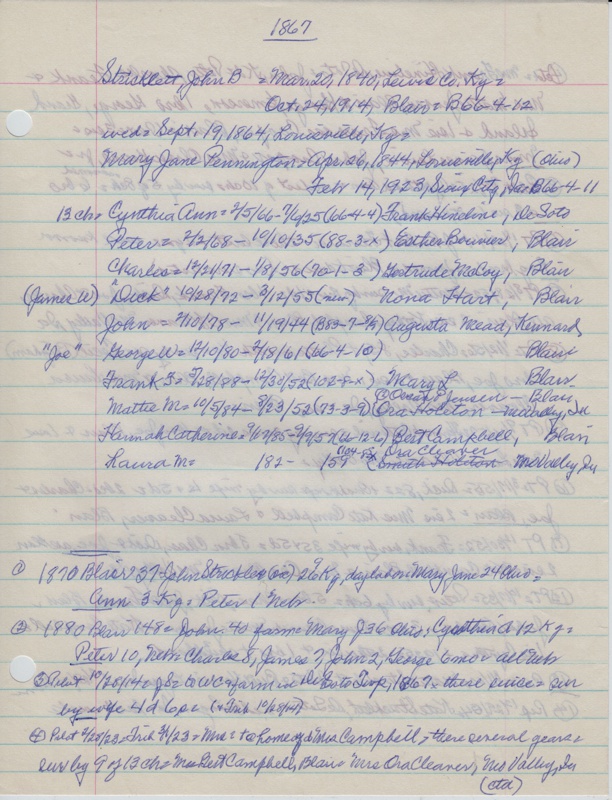 1867
Stricklett, John B = Mar. 20, 1840, Lewis Co. Ky =
Oct. 24, 1914, Blair = B66-4-12
wed = Sept. 19, 1864, Louisville, Ky =
Mary Jane Pennington = Apr. 26, 1844, Louisville, Ky (Ohio)
Feb 14, 1923, Sioux City, Ia = B66-4-11
13 ch = Cynthia Ann = 2/5/66 - 7/6/25 (66-4-4) Frank Hineline, DeSoto
Peter = 2/2/68 - 10/10/35 (88-3-x) Esther Bounier, Blair
Charles = 12/21/71 - 1/8/56 (70-1-3) Gertrude McCoy, Blair
(James W) "Dick" 10/28/72 - 3/12/55 (new) Nona Hart, Blair
John = 2/10/78 - 11/19/44 Augusta Mead, Kennard
"Joe" George W = 12/10/80 - 2/18/61 (66-4-10) Blair
Frank = 5/28/88 - 12/30/52 (102-8-x) Mary L Blair
Jensen - Blair
Mattie M = 10/5/84 - 8/23/52 (73-3-9) Ora Holeton -
Hannah Catherine = Bert Campbell, Blair
Ora Cleaver
Laura M = 182 - 159 Smith Holeton Mo Valley, Ia
① 1870 Blair = 37 = John 26 Ky, day labor = Mary Jane 24 Ohio =
Ann 3 Ky = Peter 1 Nebr.
② 1880 Blair 148 = John 40 farm = Mary J 36 Ohio; Cynthia A 12 Ky =
Peter 10, Nebr Charles 8, James 7, John 2, George 6 mo = all Nebr
③ Pilot 10/28/14 = to WC = farm in DeSoto Twp, 1867 = there since = sur
by wife 4 d 6 s =
④ = to home of Mrs Campbell = there several years =
sur by 9 of 13 ch = Mrs Bert Campbell, Blair = Mrs Ora Cleaver, Mo Valley, Ia
(ctd)